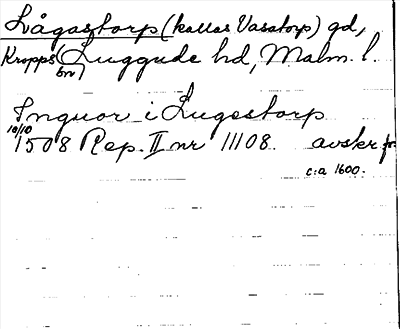 Lågastorp (kallas Vasatorp) gd,
Kropps sn) Luggude hd, Malm. l.
Inguor i Lugestorp
10/10 1508 Rep. II nr 11108. avskr fr
c:a 1600.